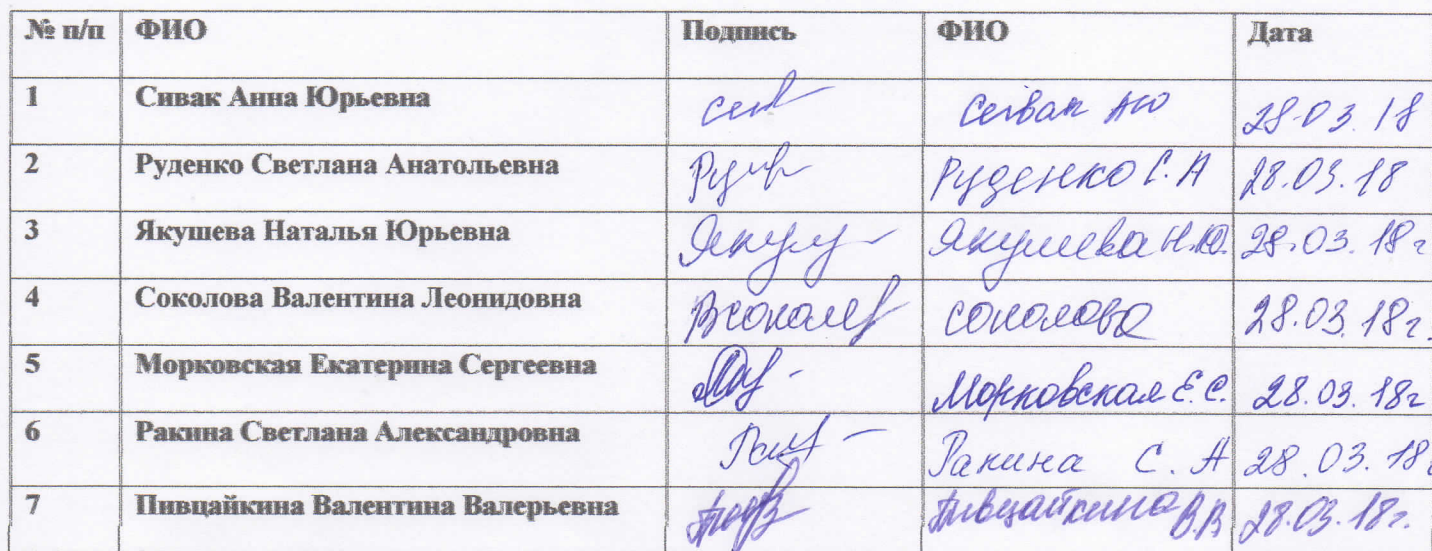 № п/п ФИО Подпись ФИО Дата
1 Сивак Анна Юрьевна Сивак АЮ 28.03.18
2 Руденко Светлана Анатольевна Руденко С.А 28.03.18
3 Якушева Наталья Юрьевна Якушева Н.Ю. 28.03.18г
4 Соколова Валентина Леонидовна соколова 28.03.18г.
5 Морковская Екатерина Сергеевна Морковская Е.С. 28.03.18г
6 Ракина Светлана Александровна Ракина С. А 28.03.18г
7 Пивцайкина Валентина Валерьевна Пивцайкина В.В 28.03.18г.